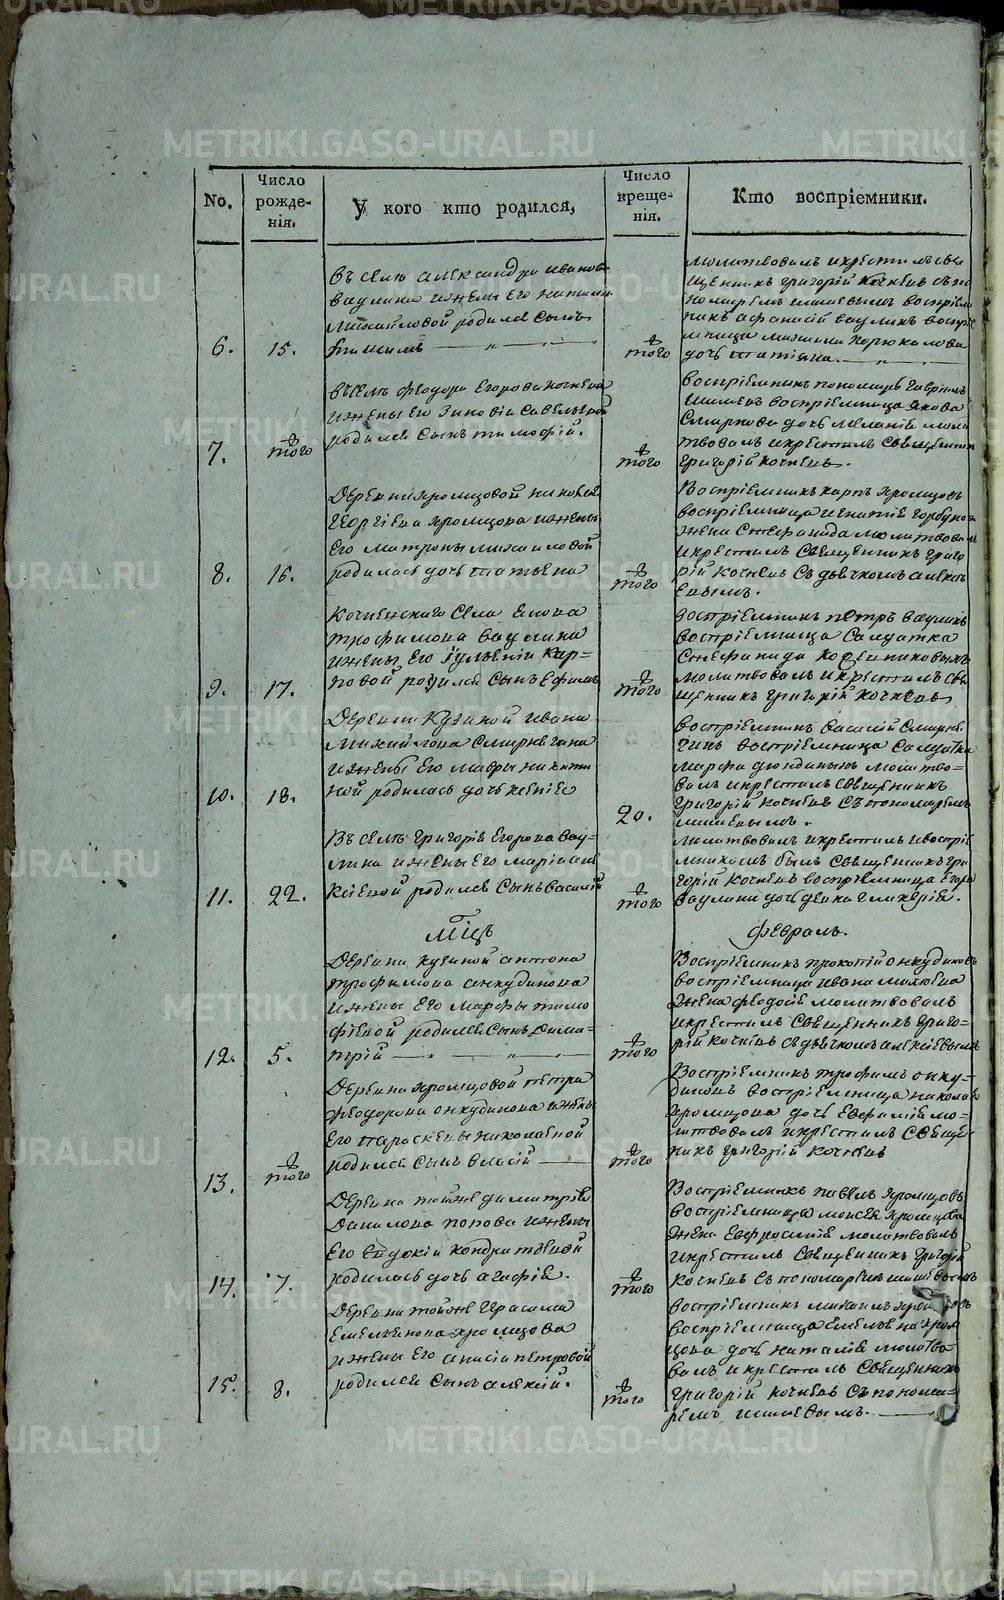 METRIKI.GASO-URAL.RU
No.
Число рожде-
нія.
У кого кто родился,
Число креще-
нія.
Кто воспріемники.
въ селѣ александра иванова
ваулина и жены его наталіи
михайловой родился сынъ
6. 15.
того
молитвовалъ и крестилъ свя
щенникъ григорій кочневъ съ по
номаремъ шишевымъ воспріем
никъ афанасій ваулинъ воспріе
мница
дочь татіана
въ селѣ феодора егорова кочнева
и жены его зиновіи савельевой
родился сынъ тимофѣй.
7. того
того
воспріемникъ пономарь гавріилъ
шишевъ воспріемница якова
смирнова дочь меланія моли
твовалъ и крестилъ священникъ
григорій кочневъ.
деревни хромцовой
георгіева хромцова и жены
его матроны михаиловой
родилась дочь татьяна
8. 16.
того
воспріемникъ карпъ хромцовъ
воспріемница игнатія горбунова
жена стефанида молитвовалъ
и крестилъ священникъ григо
рій кочневъ съ дьячкомъ алексі
евымъ.
кочневскаго села
трофимова ваулина
и жены его іуліаніи кар=
повой родился сынъ ефимъ
9. 17.
того
воспріемникъ петръ ваулинъ
воспріемница салдатка
стефанида
молитвовалъ и крестилъ свя
щенникъ григорій кочневъ
деревни кузиной ивана
михайлова смирнягина
и жены его мавры никити
ной родилась дочь ксенія
10. 18.
20.
воспріемникъ василій смирня
гинъ воспріемница салдатка
марфа молитво=
валъ и крестилъ священникъ
григорій кочневъ съ пономаремъ
шишевымъ.
въ селѣ григорія егорова вау=
лина и жены его маріи але
ксіевой родился сынъ василій
11. 22.
того
молитвовалъ и крестилъ и воспріе
мникомъ былъ священникъ гри
горій кочневъ воспріемница егора
ваулина дочь девка гликерія.
мцъ
февраль.
деревни кузиной антона
трофимова анкудинова
и жены его марфы тимо
фіевой родился сынъ дими-
трій
12. 5.
того
воспріемникъ прокопій онкудиновъ
воспріемница ивана
жена феодосія молитвовалъ
и крестилъ священникъ григо=
рій кочневъ съ дьячкомъ алексіевымъ
деревни хромцовой петра
феодорова онкудинова и жены
его параскевы николаевой
родился сынъ власій
13. того
того
воспріемникъ трофимъ онку=
диновъ воспріемница николая
хромцова дочь евфимія мо=
литвовалъ и крестилъ священ
никъ григорій кочневъ
деревни тойже димитрія
данилова попова и жены
его евдокіи кондратьевой
родилась дочь агафія.
14. 7.
того
воспріемникъ павелъ хромцовъ
воспріемница моисея хромцова
жена евфросинія молитвовалъ
и крестилъ священникъ григорій
кочневъ съ пономаремъ шишевымъ
деревни тойже герасима
емельянова хромцова
и жены его анисіи петровой
родился сынъ алексій.
15. 8.
того
воспріемникъ михаилъ
воспріемница емельяна хром
цова дочь наталія молитво
валъ и крестилъ священникъ
григорій кочневъ съ понома=
ремъ шишевымъ.